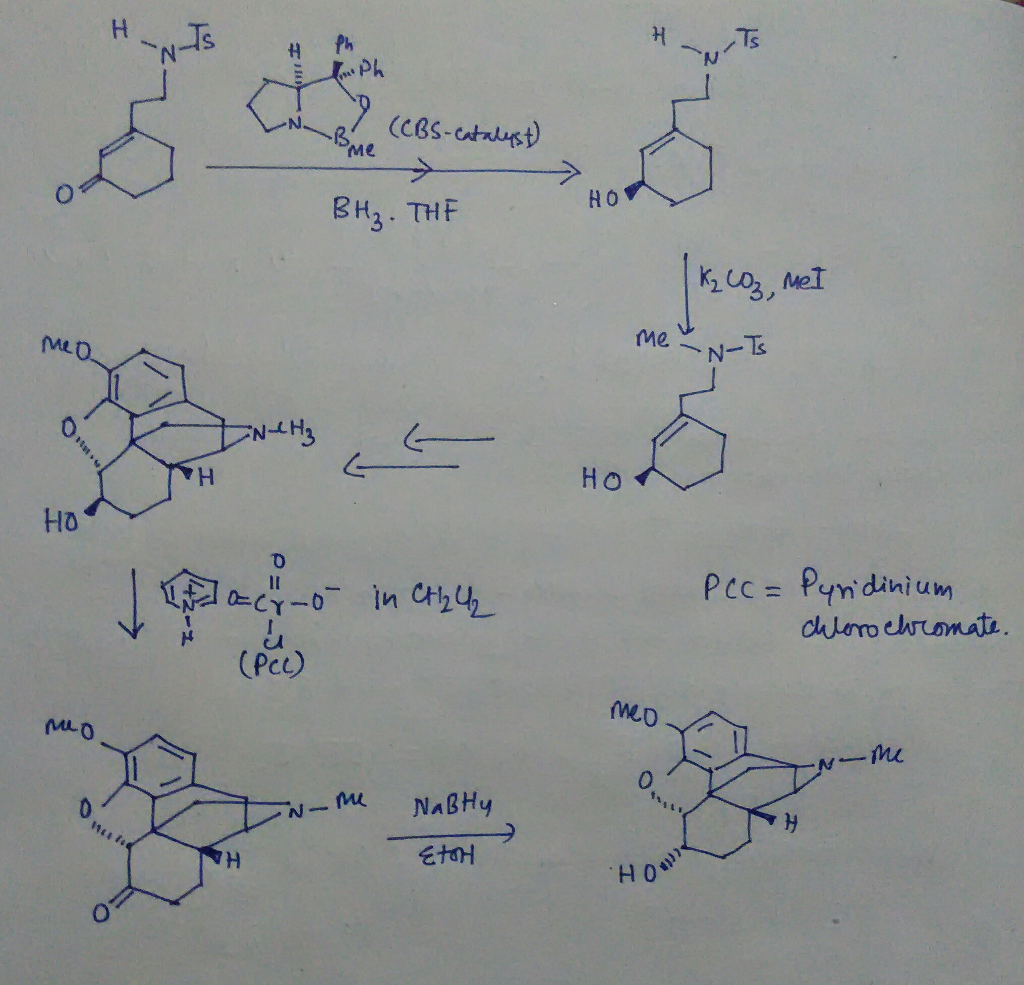 H
N-Ts
O
H
Ph
Ph
O
N
B
Me
(CBS-catalyst)
BH3. THF
H
N
Ts
HO
K2CO3, MeI
Me
N-Ts
HO
MeO
O
N-CH3
H
HO
O
O=Cr-O-
Cl
+
N
H
in CH2Cl2
(PCC)
PCC = Pyridinium
chlorochromate.
MeO
O
N-Me
H
O
NaBH4
EtOH
MeO
O
N-Me
H
HO